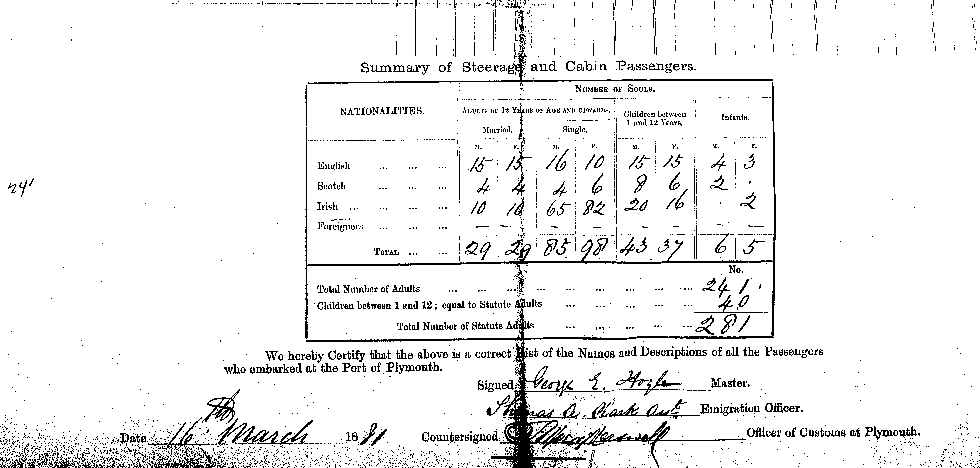 Summary of Steerage and Cabin Passengers.
NUMBER OF SOULS.
NATIONALITIES. ADULTS OF 12 YEARS OF AGE AND UPWARDS. Children between 1 and 12 Years. Infants.
Married. Single.
M. F. M. F. M. F. M. F.
English ... ... ... 15 15 16 10 15 15 4 3
Scotch ... ... ... 4 4 4 6 8 6 2 .
Irish ... ... ... 10 10 65 82 20 16 . 2
Foreigners ... ... ... — — — — — — — —
TOTAL ... ... 29 29 85 98 43 37 6 5
No.
Total Number of Adults ... ... ... ... ... ... ... 241
Children between 1 and 12; equal to Statute Adults ... ... ... ... 40
Total Number of Statute Adults ... ... ... ... 281
24'
We hereby Certify that the above is a correct List of the Names and Descriptions of all the Passengers
who embarked at the Port of Plymouth.
Signed George E. Master.
Thomas Clark Emigration Officer.
Date 16th March 1881 Countersigned Officer of Customs at Plymouth.